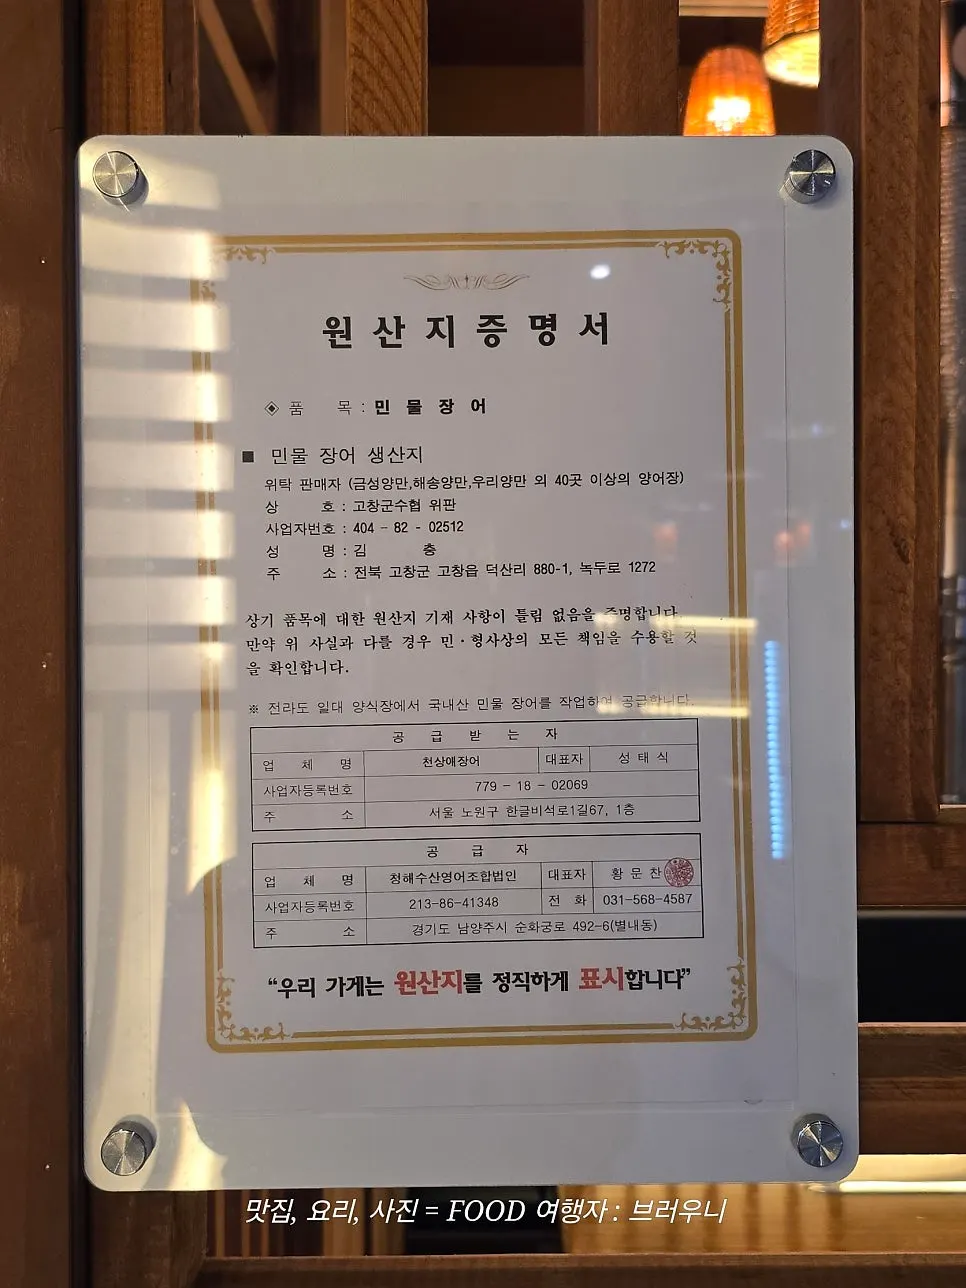 원 산 지 증 명 서
◈ 품 목 : 민 물 장 어
■ 민물 장어 생산지
위탁 판매자 (금성양만,해송양만,우리양만 외 40곳 이상의 양어장)
상 호 : 고창군수협 위판
사업자번호 : 404 - 82 - 02512
성 명 : 김 충
주 소 : 전북 고창군 고창읍 덕산리 880-1, 녹두로 1272
상기 품목에 대한 원산지 기재 사항이 틀림 없음을 증명합니다.
만약 위 사실과 다를 경우 민·형사상의 모든 책임을 수용할 것
을 확인합니다.
※ 전라도 일대 양식장에서 국내산 민물 장어를 작업하여 공급합니다.
공 급 받 는 자
업 체 명 천상애장어 대표자 성 태 식
사업자등록번호 779 - 18 - 02069
주 소 서울 노원구 한글비석로1길67, 1층
공 급 자
업 체 명 청해수산영어조합법인 대표자 황 문 찬
사업자등록번호 213-86-41348 전 화 031-568-4587
주 소 경기도 남양주시 순화궁로 492-6(별내동)
“우리 가게는 원산지를 정직하게 표시합니다”
맛집, 요리, 사진 = FOOD 여행자 : 브러우니